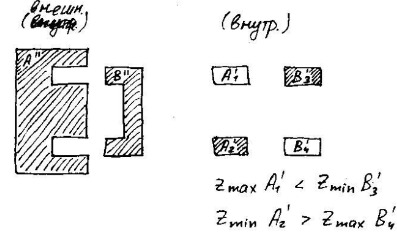 внешн.
(внутр.)
(внутр.)
A" B" A₁' B₃'
A₂' B₄'
z max A₁' < z min B₃'
z min A₂' > z max B₄'